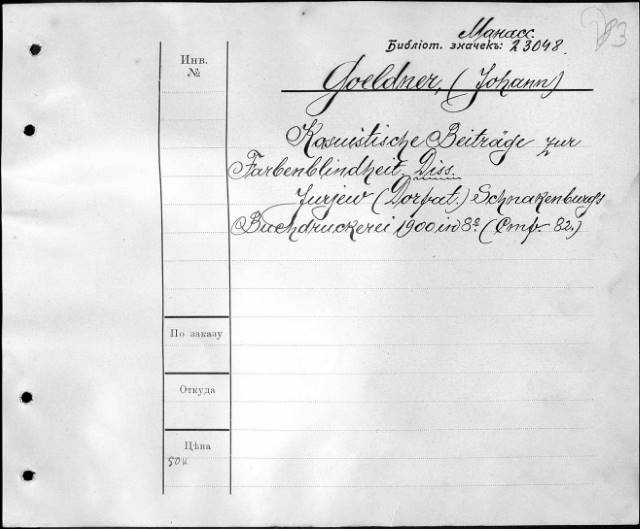 Манасс.
Библіот. значекъ: 23048.
Инв.
№
Goeldner, (Johann)
Kasuistische Beiträge zur
Farbenblindheit Diss.
Jurjew (Dorpat.) Schnakenburg's
Buchdruckerei 1900 in 8º (Стр. 82.)
По заказу
Откуда
Цѣна
50к